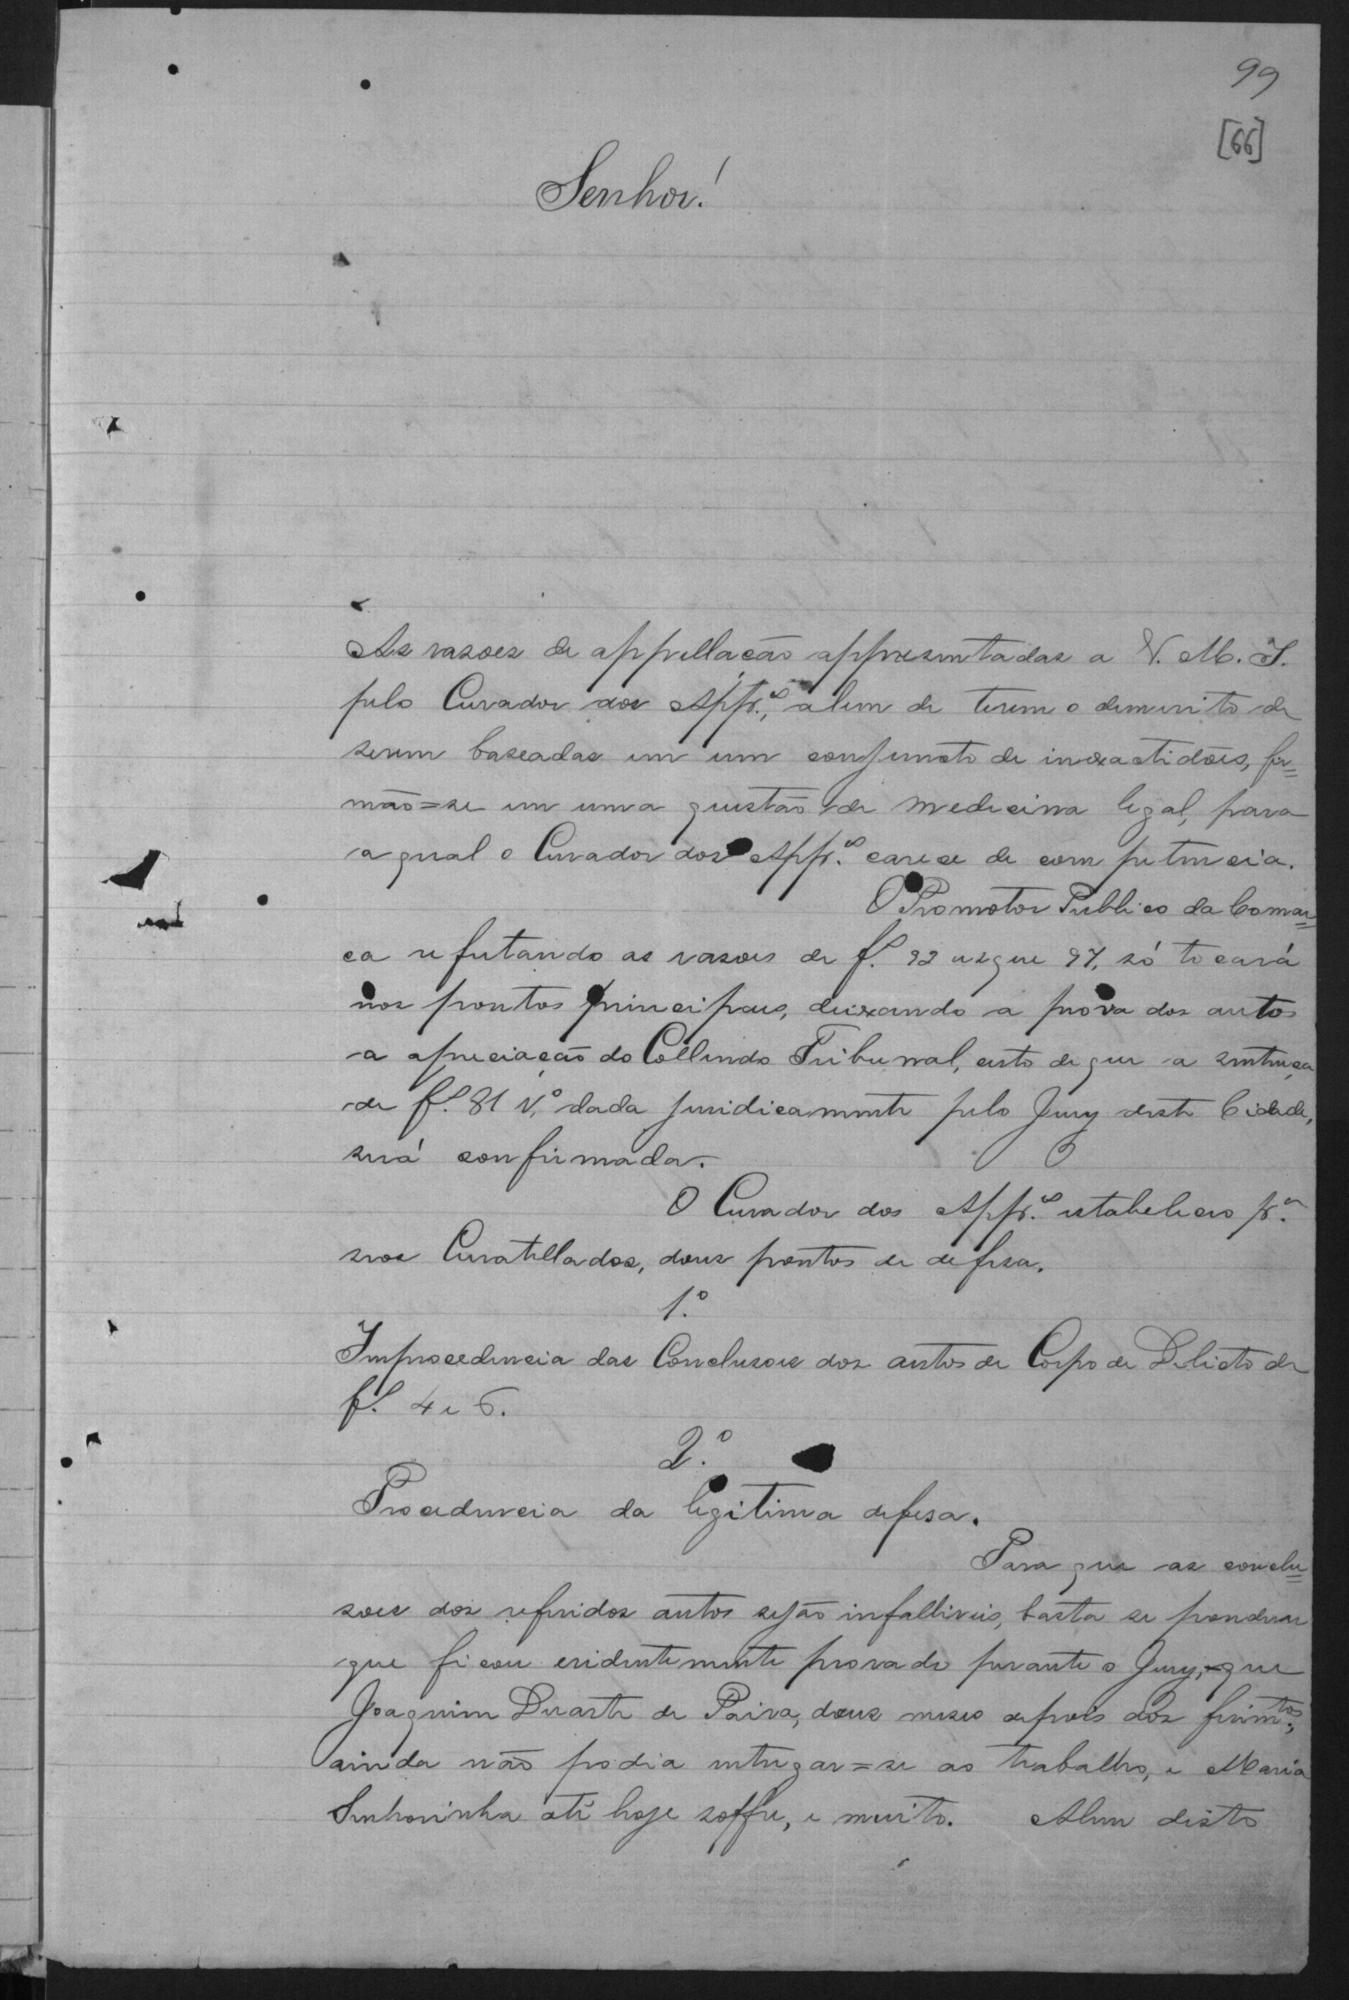 99
[66]
Senhor!
As rasoes de appellação appresentadas a V. M. I.
pelo Curador dos App.es, alem de terem o demerito de
serem baseadas em um conjuncto de inexactidões, fir=
mão=se em uma questão de medicina legal, para
a qual o Curador dos App.es carece de competencia.
O Promotor Publico da Comar=
ca refutando as rasoes de fl. 92 usque 97, só tocará
nos pontos principaes, deixando a prova dos autos
a apreciação do Collendo Tribunal, certo de que a sentença
de fl. 81 v.o dada juridicamente pelo Jury desta Cidade,
será confirmada.
O Curador dos App.es estabeleceo p.a
seos Curatellados, dous pontos de defesa.
1.o
Improcedencia das Conclusoes dos autos de Corpo de Delicto de
fl. 4 e 6.
2.o
Procedencia da legitima defesa.
Para que as conclu=
soes dos referidos autos sejão infalliveis, basta se ponderar
que ficou evidentemente provado perante o Jury, que
Joaquim Duarte de Paiva, dous meses depois dos ferimtos,
ainda não podia entregar=se ao trabalho, e Maria
Senhorinha até hoje soffre, e muito. Alem disto